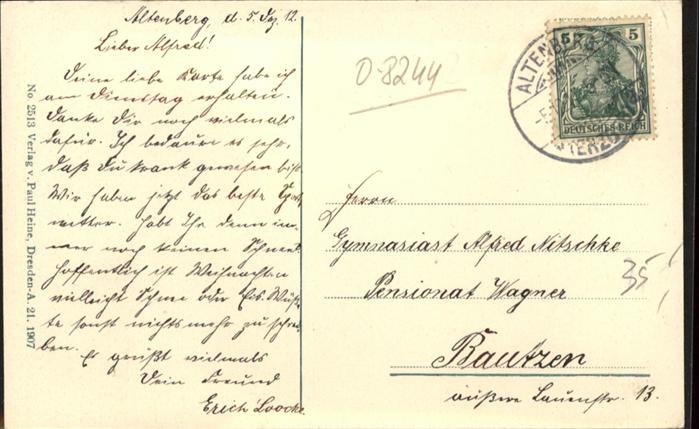 Altenberg, d. 5. Dez. 12.
Lieber Alfred!
Deine liebe Karte habe ich
am Dienstag erhalten.
Danke Dir noch vielmals
dafür. Ich bedaure es sehr,
daß Du krank gewesen bist.
Wir haben jetzt das beste
wetter. Habt Ihr denn im-
mer noch keinen Schnee?
Hoffentlich ist Weihnachten
vielleicht Schnee oder Eis. Wüß-
te sonst nichts mehr zu schrei-
ben.
Es grüßt vielmals
Dein Freund
Erich Loocke.
No. 2513 Verlag v. Paul Heine, Dresden-A. 21. 1907
O-8244
ALTENBERG
5 5
DEUTSCHES REICH
Herrn
Gymnasiast Alfred Nitschke
Pensionat Wagner
Bautzen
äußere Lauenstr. 13.
35